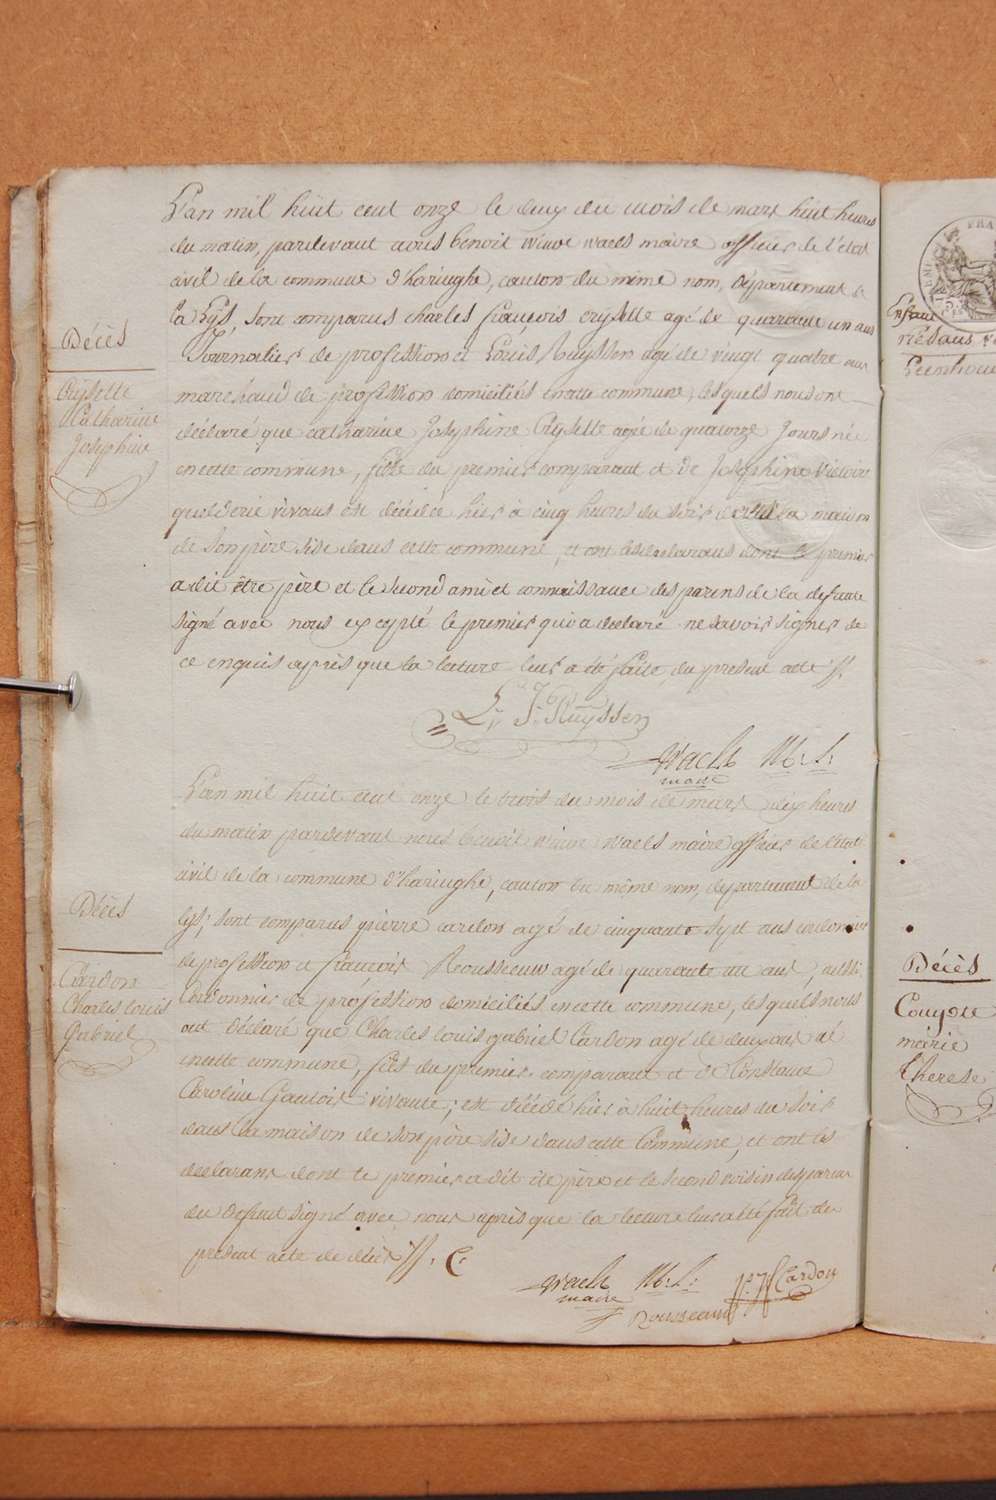 L'an mil huit cent onze le deux du mois de mars huit heures
du matin, pardevant nous benoit winoc waels maire officier de l'état
civil de la commune d'haringhe, canton du même nom, Département de
la Lÿs, sont comparus charles françois crÿsette agé de quarante un ans
Journalier de profession et Louis Ruÿssen agé de vingt quatre ans
marchand de profession domiciliés en cette commune, lesquels nous ont
déclaré que catharine Josephine Crÿsette agée de quatorze Jours née
en cette commune, fille du premier comparant et de Josephine victoire
vivans est décédée hier à cinq heures du soir dans la maison
de son père sise dans cette commune, et ont les declarans dont le premier
a dit être père et le second ami et connaissance des parens de la defunte
signé avec nous excepté le premier qui a declaré ne savoir signer de
ce enquis après que la lecture leur a été faite du present acte
L. J. Ruÿssen
Waels M:
maire
L'an mil huit cent onze le trois du mois de mars dix heures
du matin pardevant nous benoit winoc waels maire officier de l'état
civil de la commune d'haringhe, canton du même nom, departement de la
lÿs, sont comparus pierre cardon agé de cinquante sept ans cordonnier
de profession et françois Rousseeuw agé de quarante un ans, aussi
Cordonnier de profession domiciliés en cette commune, lesquels nous
ont déclaré que Charles louis gabriel Cardon agé de deux ans né
en cette commune, fils du premier comparant et de Constance
Caroline vivante; est décédé hier à huit heures du soir
dans la maison de son père sise dans cette Commune, et ont les
declarans dont le premier a dit être père et le second voisin des parens
du defunt signé avec nous après que la lecture leur a été fait du
present acte de décès
Waels M: Cardon
maire
Rousseeuw
Décès
Crÿsette
Catharine
Josephine
Décès
Cardon
Charles louis
Gabriel
Enfant
né sans
Décès
marie
Therese